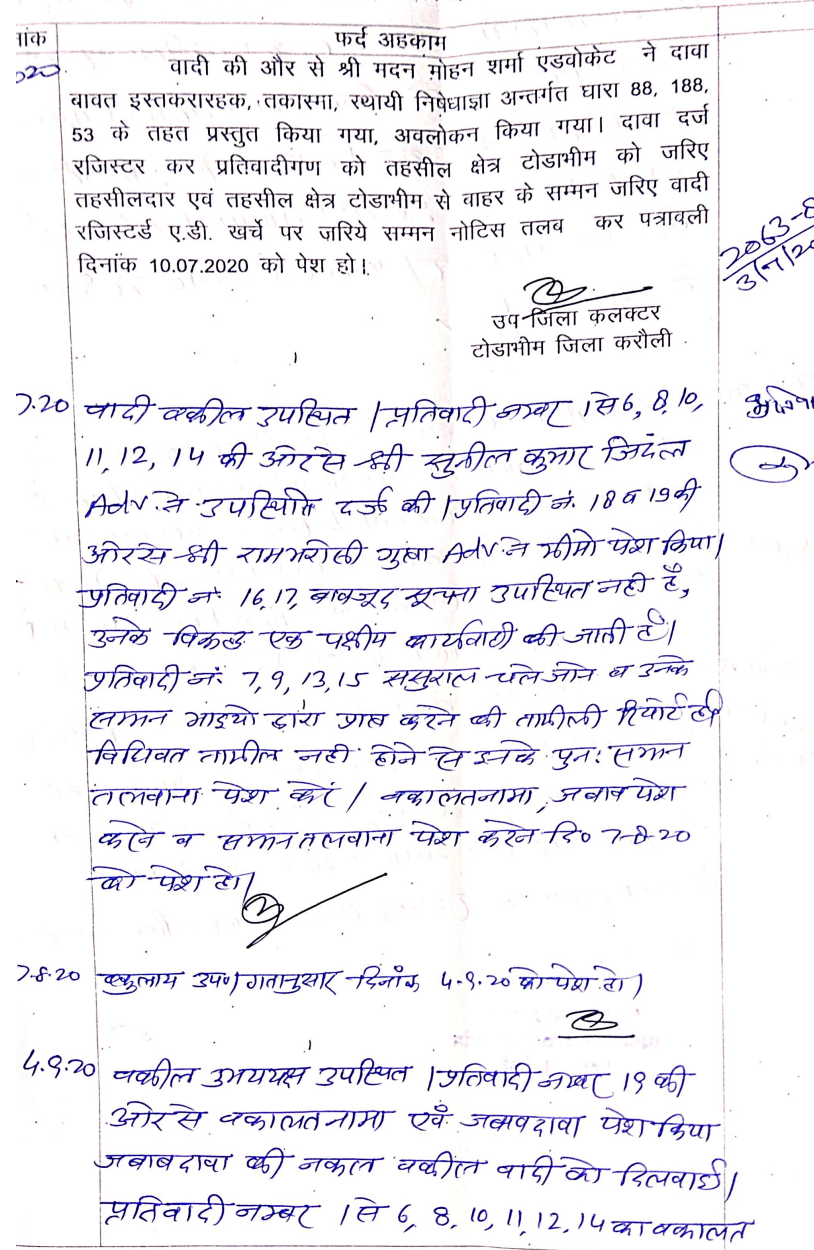 नांक फर्द अहकाम
020 वादी की और से श्री मदन मोहन शर्मा एडवोकेट ने दावा
बावत इस्तकरारहक, तकास्मा, स्थायी निषेधाज्ञा अन्तर्गत धारा 88, 188,
53 के तहत प्रस्तुत किया गया, अवलोकन किया गया। दावा दर्ज
रजिस्टर कर प्रतिवादीगण को तहसील क्षेत्र टोडाभीम को जरिए
तहसीलदार एवं तहसील क्षेत्र टोडाभीम से वाहर के सम्मन जरिए वादी
रजिस्टर्ड ए.डी. खर्चे पर जरिये सम्मन नोटिस तलब कर पत्रावली
दिनांक 10.07.2020 को पेश हो।
2063-8
3/7/20
उप जिला कलक्टर
टोडाभीम जिला करौली
7.20 वादी वकील उपस्थित। प्रतिवादी नम्बर 1 से 6, 8, 10,
11, 12, 14 की ओर से श्री सुनील कुमार जिंदल
Adv. ने उपस्थिति दर्ज की। प्रतिवादी नं. 18 व 19 की
ओर से श्री रामभरोसी गुप्ता Adv. ने मीमो पेश किया।
प्रतिवादी नं. 16, 17, बावजूद सूचना उपस्थित नही है,
उनके विरूद्ध एक पक्षीय कार्यवाही की जाती है।
प्रतिवादी नं. 7, 9, 13, 15 ससुराल चले जाने व उनके
सम्मन भाइयो द्वारा प्राप्त करने की तामीली रिपोर्ट है।
विधिवत तामील नही होने से इनके पुन: सम्मन
तलवाना पेश करें। वकालतनामा, जबाब पेश
करने व सम्मन तलवाना पेश करने दि० 7-8-20
को पेश हो।
7.8.20 वकुलाय उप०। गतानुसार दिनाँक 4.9.20 को पेश हो।
4.9.20 वकील उभयपक्ष उपस्थित। प्रतिवादी नम्बर 19 की
ओर से वकालतनामा एवं जबावदावा पेश किया
जबाबदावा की नकल वकील वादी को दिलवाई।
प्रतिवादी नम्बर 1 से 6, 8, 10, 11, 12, 14 का वकालत